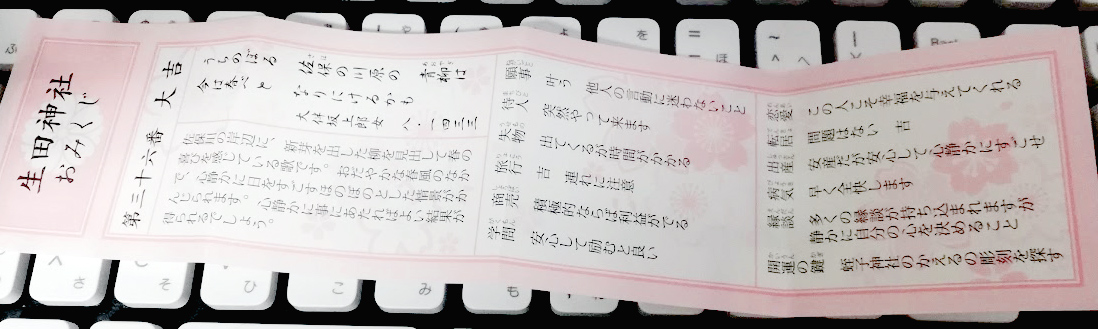 生田神社
おみくじ
第三十六番 大吉
うちのぼる 佐保の川原の 青柳は
今は春べと なりにけるかも
大伴坂上郎女 八・一四三三
佐保川の岸辺に、新芽を出した柳を見出して春の
喜びを感じている歌です。おだやかな春風のなか
で、心静かに日をすごすほのぼのとした情景がか
んじられます。心静かに事にあたればよい結果が
得られるでしょう。
願事 叶う 他人の言動に迷わないこと
待人 突然やって来ます
失物 出てくるが時間がかかる
旅行 吉 連れに注意
商売 積極的ならば利益がでる
学問 安心して励むと良い
恋愛 この人こそ幸福を与えてくれる
転居 問題はない 吉
出産 安産だが安心して心静かにすごせ
病気 早く全快します
縁談 多くの縁談が持ち込まれますが
静かに自分の心を決めること
開運の鍵 蛭子神社のかえるの彫刻を探す